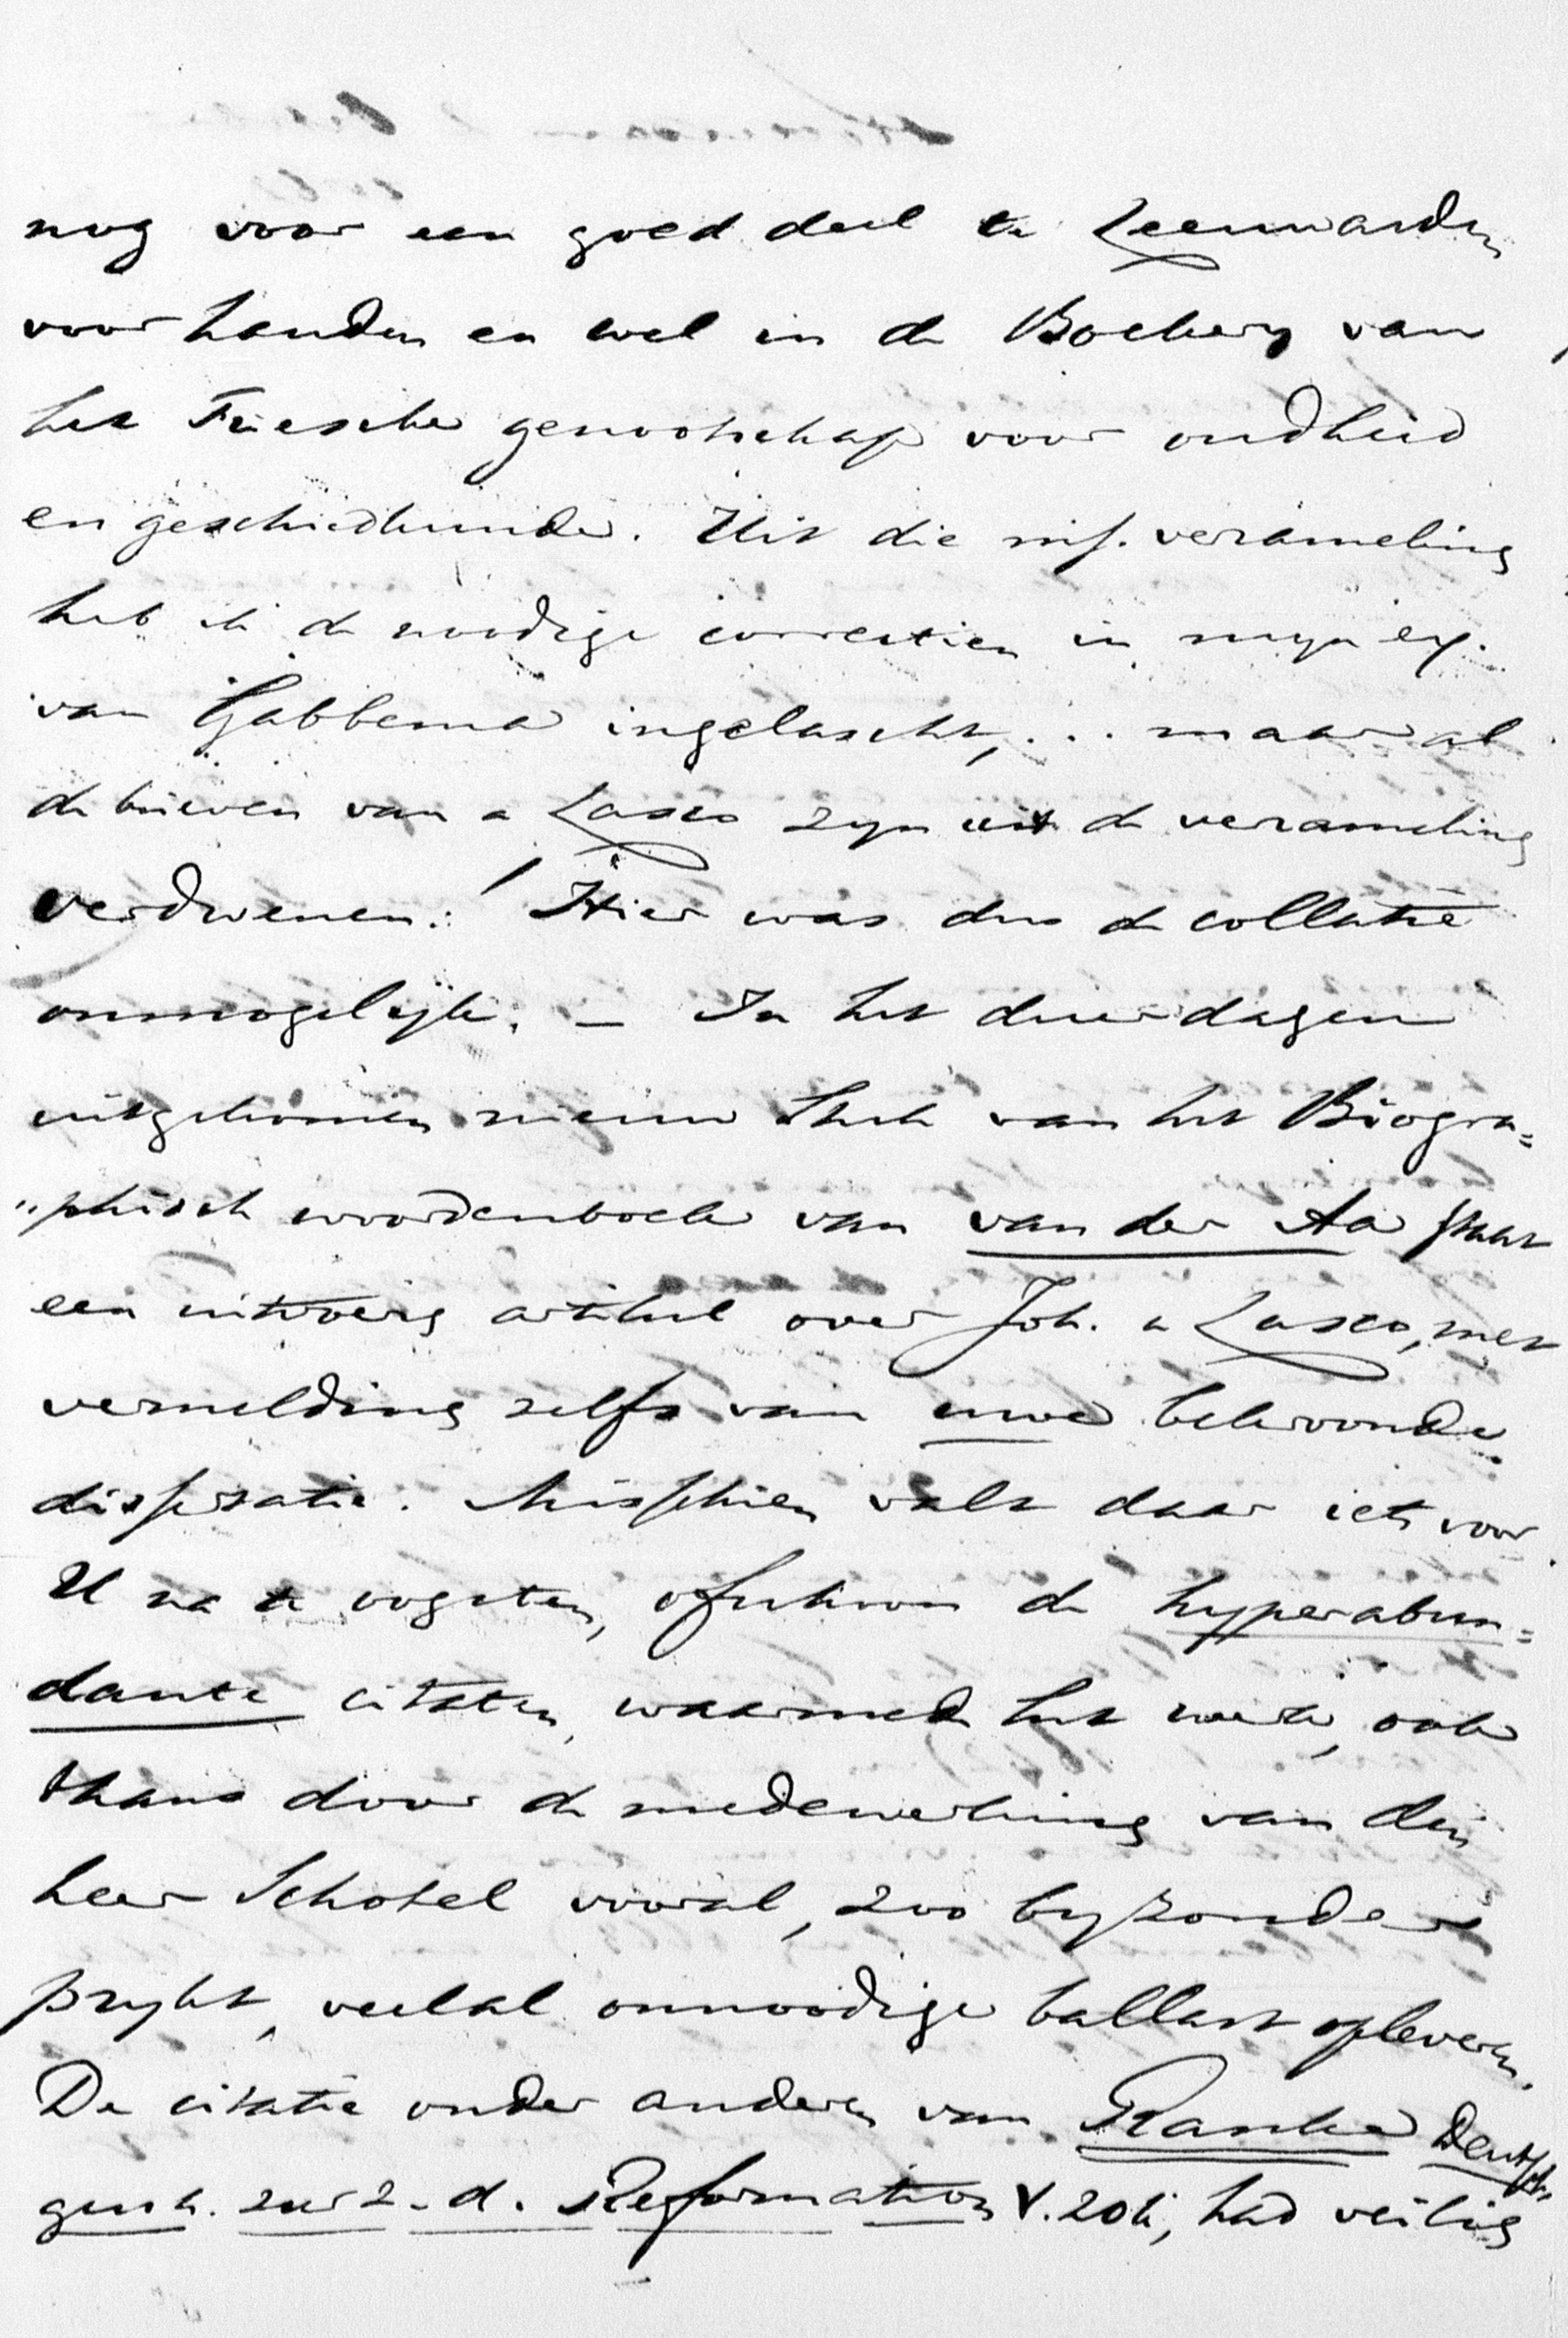 nog voor een goed deel te Leeuwarden
voorhanden en wel in de Boekery van
het Friesche genootschap voor oudheid
en geschiedkunde. Uit die mss. verzameling
heb ik de noodige correctien in myn ex.
van Gabbema ingelascht, ... maar al
de brieven van a Lasco zyn uit de verzameling
verdwenen! Hier was dus de collatie
onmogelyk. — In het dezer dagen
uitgekomen nieuw Stuk van het Biogra=
"phisch woordenboek van van der Aa staat
een uitvoerig artikel over Joh. a Lasco, met
vermelding zelfs van uwe bekroonde
dissertatie. Misschien valt daar iets voor
U na te oogsten, ofschoon de hyperabun=
dante citaten, waarmede het werk, ook
thans door de medewerking van den
heer Schotel vooral, zoo byzonder
prykt, veelal onnoodige ballast opleveren.
De citatie onder anderen van Ranke Deutsch.
gesch. zur Z. d. Reformation V. 206, had veilig